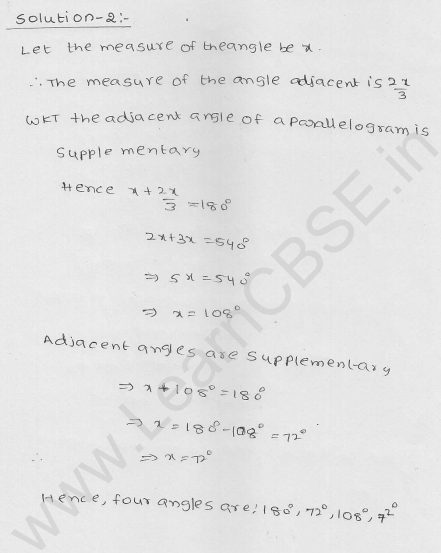 Solution-2:-
Let the measure of the angle be x.
∴ The measure of the angle adjacent is 2x/3
WKT the adjacent angle of a parallelogram is
Supplementary
Hence x + 2x/3 = 180°
2x+3x = 540°
⇒ 5x = 540°
⇒ x = 108°
Adjacent angles are Supplementary
⇒ x + 108° = 180°
⇒ x = 180° - 108° = 72°
∴ ⇒ x = 72°
Hence, four angles are: 180°, 72°, 108°, 72°
www.LearnCBSE.in